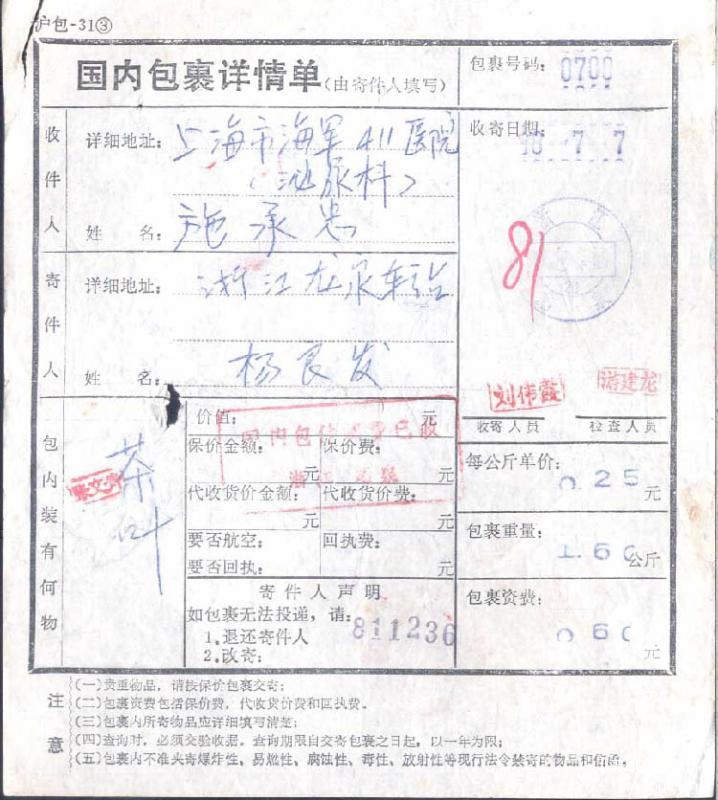 沪包-31③
国内包裹详情单(由寄件人填写)
包裹号码: 0700
收件人
详细地址: 上海市海军411医院
(泌尿科)
姓名: 施承忠
收寄日期: 7 7
81
寄件人
详细地址: 浙江龙泉车站
姓名: 杨良发
刘伟霞
游建龙
收寄人员
检查人员
包内装有何物
茶叶
价值: 元
国内包 已收
保价金额: 元
保价费: 元
代收货价金额: 元
代收货价费: 元
要否航空:
要否回执:
回执费: 元
寄件人声明
如包裹无法投递,请:
1.退还寄件人
2.改寄:
811236
每公斤单价: 0.25元
包裹重量: 1.60公斤
包裹资费: 0 60 元
注意
(一)贵重物品,请按保价包裹交寄;
(二)包裹资费包括保价费,代收货价费和回执费。
(三)包裹内所寄物品应详细填写清楚;
(四)查询时,必须交验收据。查询期限自交寄包裹之日起,以一年为限;
(五)包裹内不准夹寄爆炸性、易燃性、腐蚀性、毒性、放射性等现行法令禁寄的物品和信函。